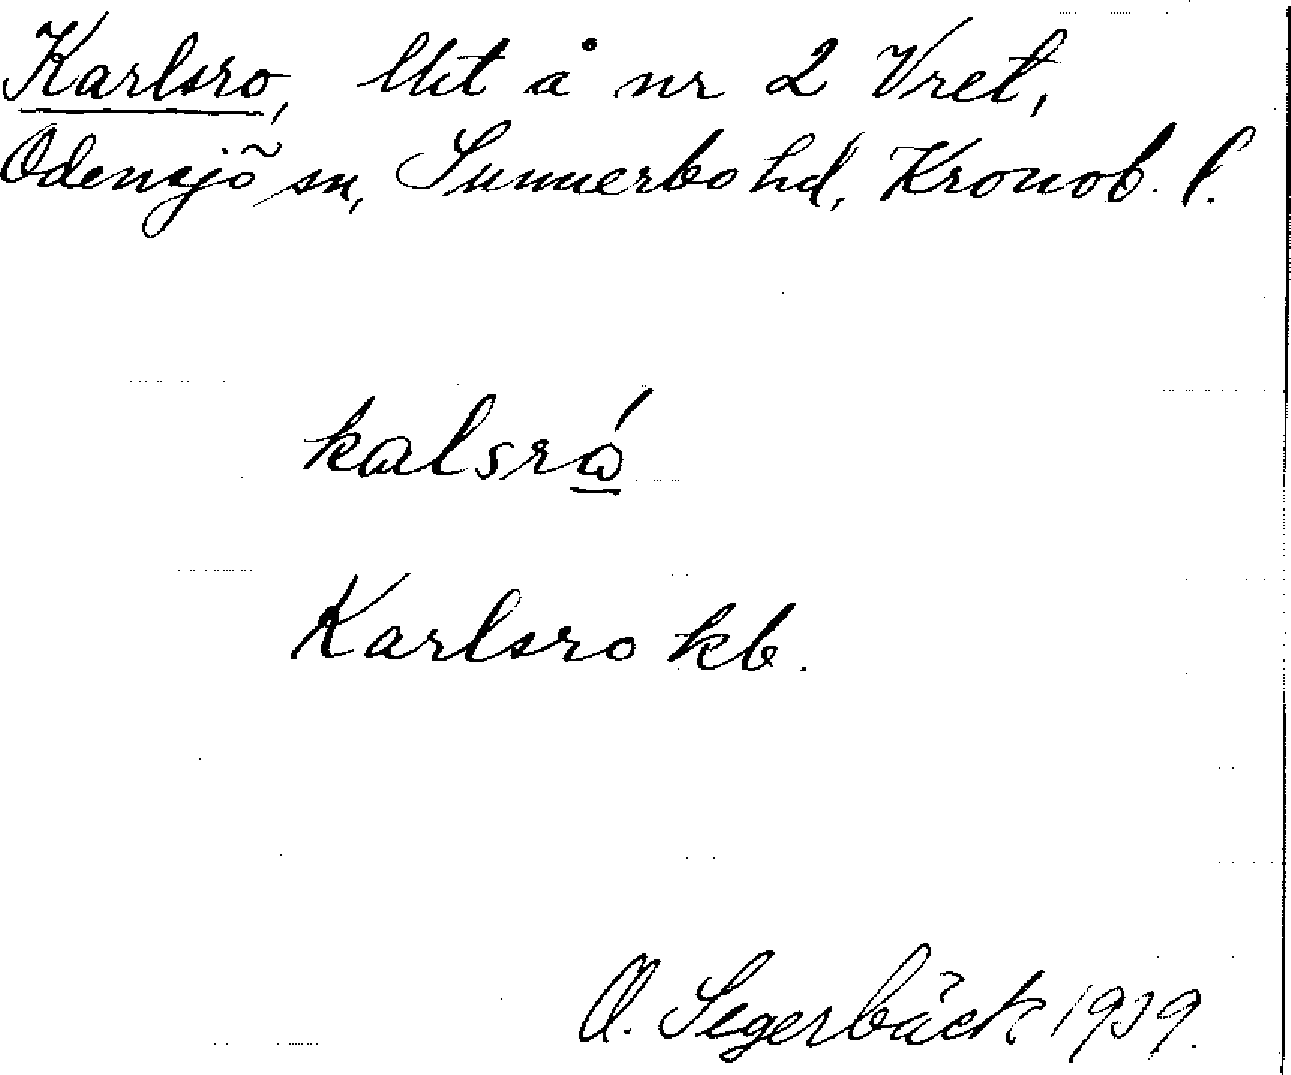 Karlsro, lht å nr 2 Vret,
Odensjö sn, Sunnerbo hd, Kronob. l.
kalsró
Karlsro kb.
O. Segerbäck 1939.